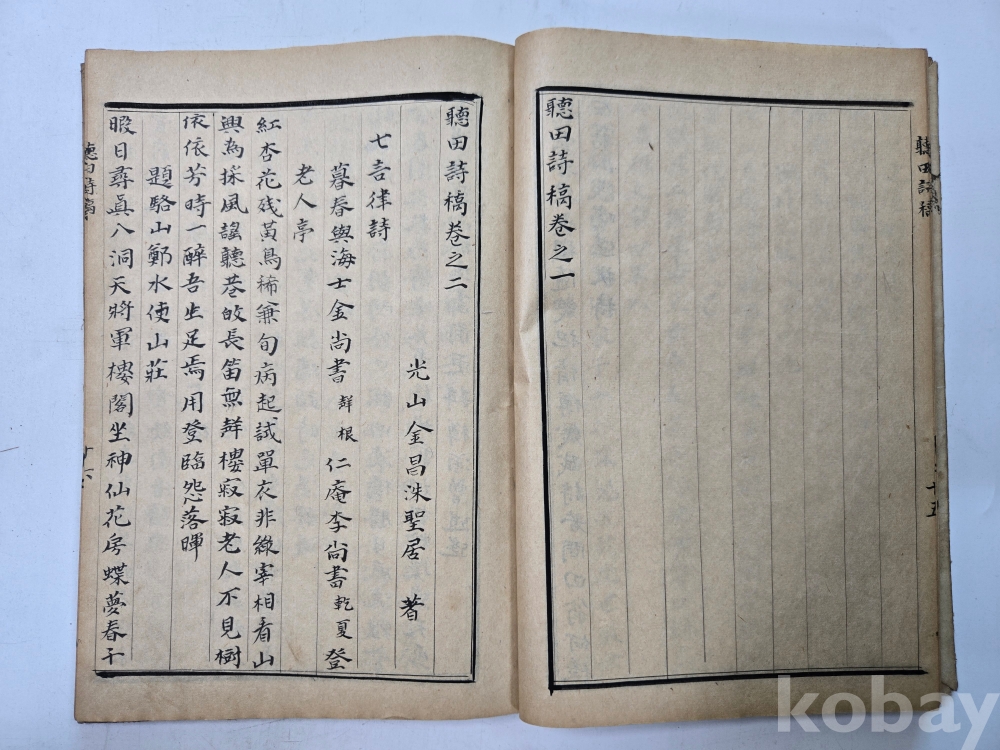 聽田詩稿
聽田詩稿卷之一
十五
聽田詩稿卷之二
光山金昌洙聖居 著
七言律詩
暮春與海士金尚書聲根仁庵李尚書乾夏登
老人亭
紅杏花残黄鳥稀兼旬病起試單衣非緣宰相看山
興為採風謠聽巷皷長笛無聲樓寂寂老人不見樹
依依芳時一醉吾生足焉用登臨怨落暉
題駱山鄭水使山莊
暇日尋眞八洞天將軍樓閣坐神仙花房蝶夢春千
聽田詩稿
十六
kobay